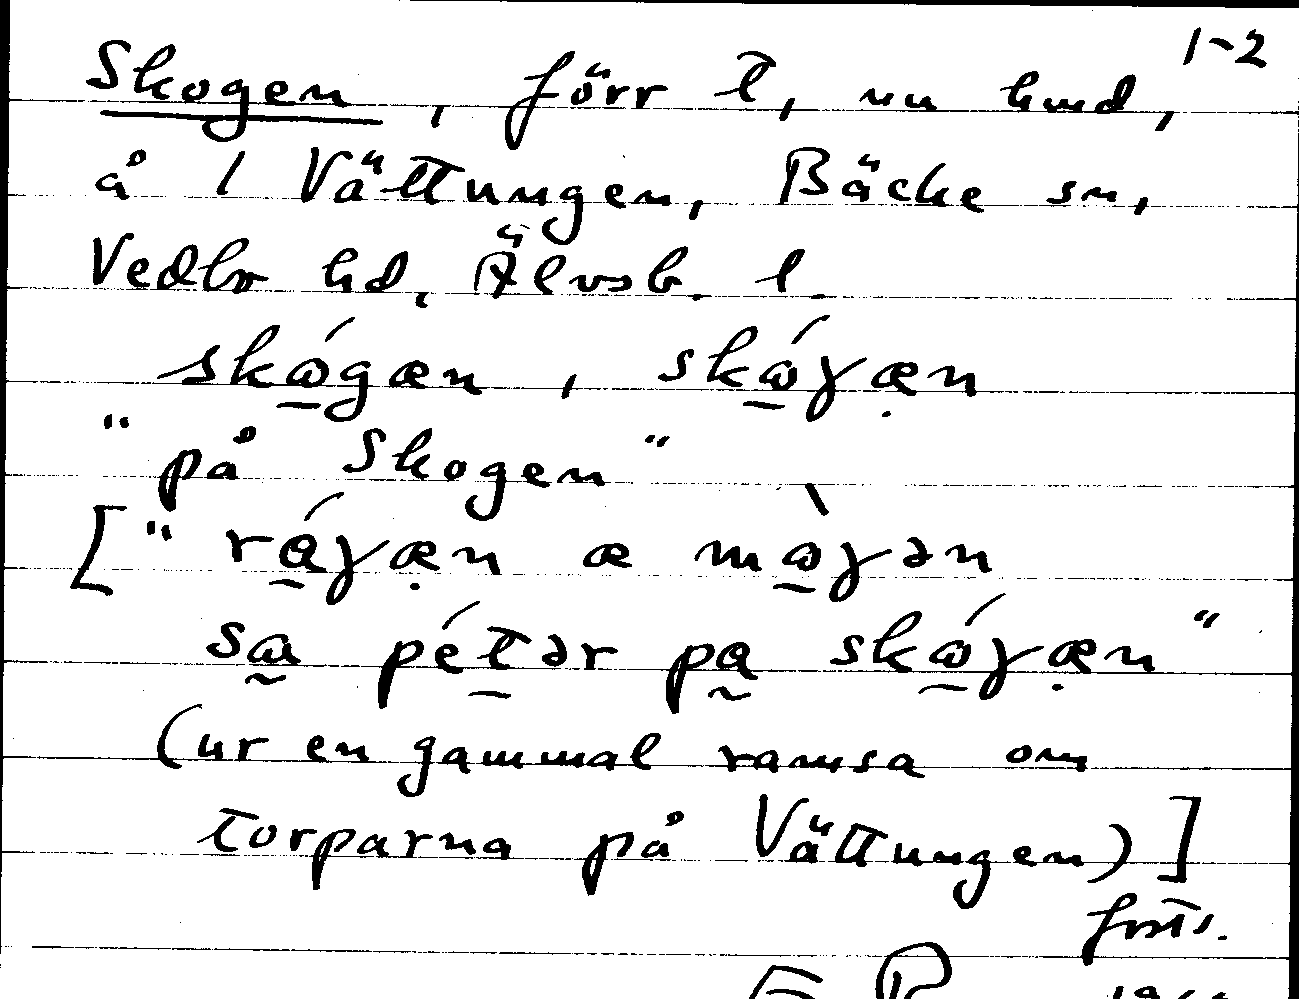 1-2
Skogen, förr t, nu hmd,
å 1 Vättungen, Bäcke sn,
Vedbo hd, Älvsb. l.
skǿgæn, skǿɣæ̣n
"på Skogen"
["rá̱ɣæ̣n æ mò̱ɣən
sa̰ pét̠ər pa̰ skó̱ɣæ̣n"
(ur en gammal ramsa om
torparna på Vättungen)]
forts.